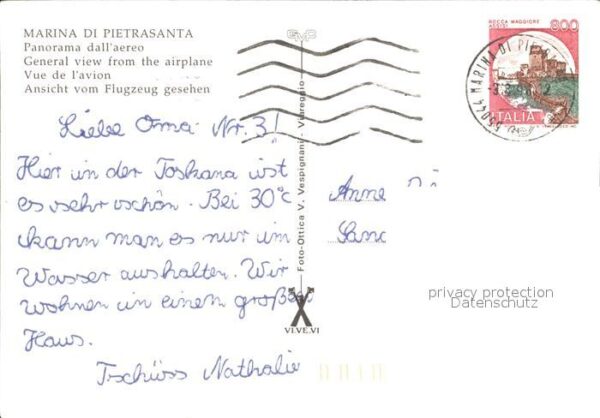 MARINA DI PIETRASANTA
Panorama dall'aereo
General view from the airplane
Vue de l'avion
Ansicht vom Flugzeug gesehen
Liebe Oma Nr. 3!
Hier in der Toskana ist
es sehr schön. Bei 30°C
kann man es nur im
Wasser aushalten. Wir
wohnen in einem großen
Haus.
Tschüss Nathalie
Foto-Ottica V. Vespignani - Viareggio
VI.VE.VI
ROCCA MAGGIORE
ASSISI
800
ITALIA
55044 MARINA DI
Anne
privacy protection
Datenschutz